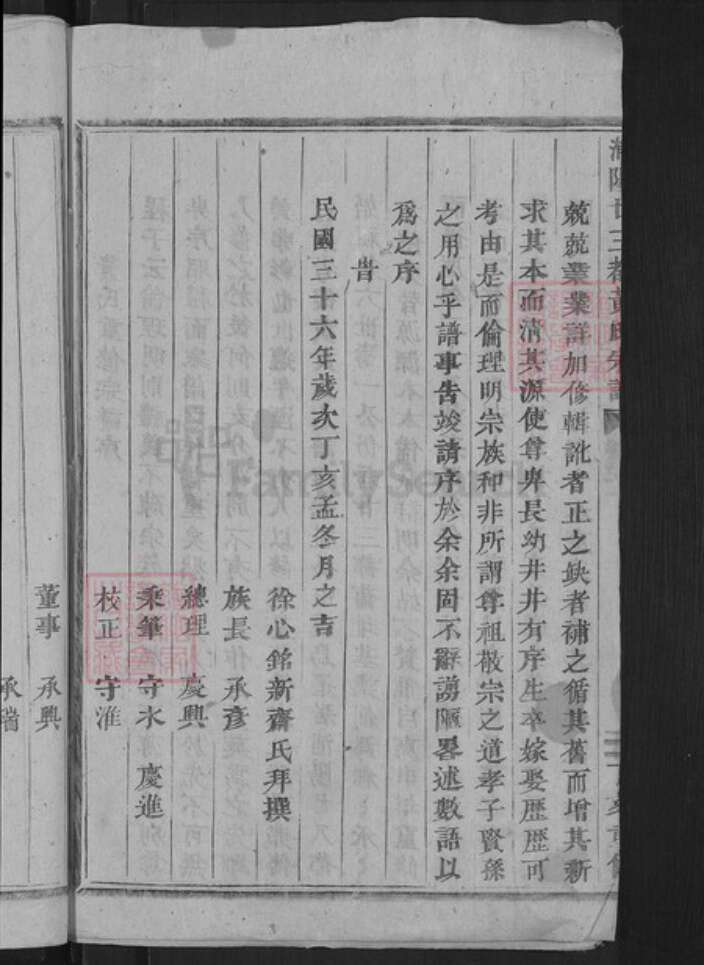 兢兢業業詳加修輯訛者正之缺者補之循其舊而增其新
求其本而清其源使尊卑長幼井井有序生卒嫁娶歷歷可
考由是而倫理明宗族和非所謂尊祖敬宗之道孝子賢孫
之用心乎譜事告竣請序於余余固不辭譾陋畧述數語以
爲之序
旹
民國三十六年歲次丁亥孟冬月之吉
徐心銘新齋氏拜撰
族長 承彥
總理 慶興
秉筆 守水 慶進
校正 守淮
董事 承興
承瑞
FamilySearch